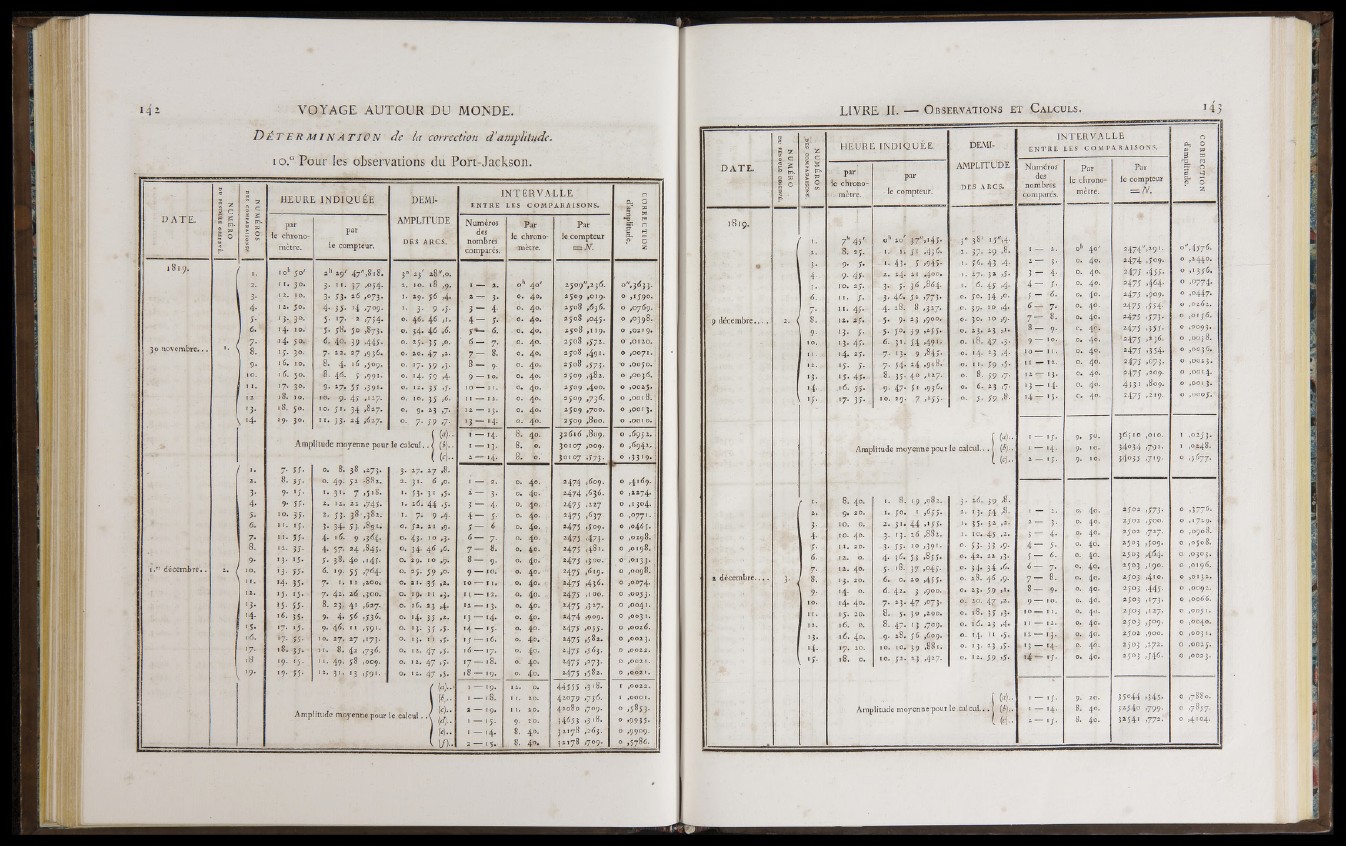 142 VOYAGE AUTOUR DU MONDE.
DÉTERMINATION de la correction d'amplitude.
10.° Pour les observations du Port-Jackson.
DATE. NUMÉRO DU PENDULE OBSERVÉ. NUMÉROS DES COMPARAISONS. HEURE INDIQUÉE DEMI-AMPLITUDE DES ARCS. INTERVALLE ENTRE LES COMPARAISONS. CORRECTION d'amplitude.
par le chronomètre. par le compteur. Numéros des nombres comparés. Par le chronomètre. Par le compteur = N.
1819.
30 novembre... 1.
1. 10h 50' 2h 29' 47",818. 3° 23' 28",0.
2. 11. 30. 3. 11. 37 ,054. 2. 10. 18 ,9. 1 — 2. 0h 40' 2509",236. 0",3633.
3. 12. 10. 3. 53. 26 ,073. 1. 29. 56 ,4. 2 — 3. 0. 40. 2509 ,019. 0 ,1590.
4. 12. 50. 4. 35. 14 ,709. 1. 3. 9 ,5. 3 — 4. 0. 40. 2508 ,636. 0 ,0769.
5. 13. 30. 5. 17. 2 ,754. 0. 46. 46 ,1. 4 — 5. 0. 40. 2508 ,045. 0 ,0398.
6. 14. 10. 5. 58. 50 ,873. 0. 34. 46 ,6. 5 — 6. 0. 40. 2508 ,119. 0 ,0219.
7. 14. 50. 6. 40. 39 ,445. 0. 25. 35 ,0. 6 — 7. 0. 40. 2508 ,572. 0 ,0120.
8. 15. 30. 7. 22. 27 ,936. 0. 20. 47 ,2. 7 — 8. 0. 40. 2508 ,491. 0 ,0071.
9. 16. 10. 8. 4. 16 ,509. 0. 17. 59 ,3. 8 — 9. 0. 40. 2508 ,573. 0 ,0050.
10. 16. 50. 8. 46. 5 ,991. 0. 14. 59 ,4. 9 — 10. 0. 40. 2509 ,482. 0 ,0036.
11. 17. 30. 9. 27. 55 ,391. 0. 12. 35 ,5. 10 — 11. 0. 40. 2509 ,400. 0 ,0025.
12. 18. 10. 10. 9. 45 ,127. 0. 10. 35 ,6. 11 — 12. 0. 40. 2509 ,736. 0 ,0018.
13. 18. 50. 10. 51. 34 ,827. 0. 9. 23 ,7. 12 — 13. 0. 40. 2509 ,700. 0 ,0013.
14. 19. 30. 11. 33. 24 ,627. 0. 7. 59 ,7. 13 — 14. 0. 40. 2509 ,800. 0 ,0010.
Amplitude moyenne pour le calcul..
(a).. 1 — 14. 8. 40. 32616 ,809. 0 ,6952.
(b).. 1 — 13. 8. 0. 30107 ,009. 0 ,6942.
(c).. 2 — 14. 8. 0. 30107 ,573. 0 ,3319.
1.er décembre.. 2.
1. 7. 55. 0. 8. 38 ,273. 3. 27. 27 ,8.
2. 8. 35. 0. 49. 52 ,882. 2. 31. 6 ,0. 1 — 2. 0. 40. 2474 ,609. 0 ,4169.
3. 9. 15. 1. 31. 7 ,518. 1. 53. 31 ,5. 2 — 3. 0. 40. 2474 ,636. 0 ,2274.
4. 9. 55. 2. 12. 22 ,745. 1. 26. 44 ,5. 3 — 4. 0. 40. 2475 ,227 0 ,1304.
5. 10. 35. 2. 53. 38 ,382. 1. 7. 9 ,4. 4 — 5. 0. 40. 2475 ,637 0 ,0771.
6. 11. 15. 3. 34. 53 ,892. 0. 52. 22 ,9. 5 — 6 0. 40. 2475 ,509. 0 ,0465.
7. 11. 55. 4. 16. 9 ,364. 0. 43. 10 ,3. 6 — 7. 0. 40. 2475 ,473. 0 ,0298.
8. 12. 35. 4. 57. 24 ,845. 0. 34. 46 ,6. 7 — 8. 0. 40. 2475 ,481. 0 ,0198.
9. 13. 15. 5. 38. 40 ,145. 0. 29. 10 ,9. 8 — 9. 0. 40. 2475 ,300. 0 ,0133.
10. 13. 55. 6. 19. 55 ,764. 0. 25. 59 ,0. 9 — 10. 0. 40. 2475 ,619. 0 ,0098.
11. 14. 35. 7. 1. 11 ,200. 0. 21. 35 ,2. 10 — 11. 0. 40. 2475 ,436. 0 ,0074.
12. 15. 15. 7. 42. 26 ,300. 0. 19. 11 ,3. 11 — 12. 0. 40. 2475 ,100. 0 ,0053.
13. 15. 55. 8. 23. 41 ,627. 0. 16. 23 ,4. 12 — 13. 0. 40. 2475 ,327. 0 ,0041.
14. 16. 35. 9. 4. 56 ,536. 0. 14. 35 ,2. 13 — 14. 0. 40. 2474 ,909. 0 ,0032.
15. 17. 15. 9. 46. 11 ,591. 0. 13. 35 ,5. 14 — 15. 0. 40. 2475 ,055. 0 ,0026.
16. 17. 55. 10. 27. 27 ,173. 0. 13. 11 ,5. 15 — 16. 0. 40. 2475 ,582. 0 ,0023.
17. 18. 35. 11. 8. 42 ,736. 0. 12. 47 ,5. 16 — 17. 0. 40. 2475 ,563. 0 ,0022.
18 19. 15. 11. 49. 58 ,009. 0. 12. 47 ,5. 17 — 18. 0. 40. 2475 ,273. 0 ,0021.
19. 19. 55. 12. 31. 13 ,591. 0. 12. 47 ,5. 18 — 19. 0. 40. 2475 ,582. 0 ,0021.
Amplitude moyenne pour le calcul..
(a).. 1 — 19. 12. 0. 44555 ,318. 1 ,0022.
(b).. 1 — 18. 11. 20. 42079 ,736. 1 ,0001.
(c).. 2 — 19. 11. 20. 42080 ,709. 0 ,5853.
(d).. 1 — 15. 9. 20. 34653 ,318. 0 ,9935.
(e).. 1 — 14. 8. 40. 32178 ,263. 0 ,9909.
(f).. 2 — 15. 8. 40. 32178 ,709. 0 ,5786.
LIVRE II. — OBSERVATIONS ET CALCULS. 143
DATE. NUMÉRO DU PENDULE OBSERVÉ. NUMÉROS DES COMPARAISONS. HEURE INDIQUÉE DEMI-AMPLITUDE DES ARCS. INTERVALLE ENTRE LES COMPARAISONS. CORRECTION d'amplitude.
par le chronomètre. par le compteur. Numéros des nombres comparés. Par le chronomètre. Par le compteur = N.
1819.
9 décembre.... 2.
1. 7h 45' 0h 20' 37",145. 3° 38' 15",4.
2. 8. 25. 1. 1. 51 ,436. 2. 37. 29 ,8. 1 — 2. 0h 40' 2474",291. 0",4576.
3. 9. 5. 1. 43. 5 ,945. 1. 56. 43 ,4. 2 — 3. 0. 40. 2474 ,509. 0 ,2440.
4. 9. 45. 2. 24. 21 ,400. 1. 27. 32 ,5. 3 — 4. 0. 40. 2475 ,455. 0 ,1356.
5. 10. 25. 3. 5. 36 ,864. 1. 6. 45 ,4. 4 — 5. 0. 40. 2475 ,464. 0 ,0774.
6. 11. 5. 3. 46. 52 ,773. 0. 50. 34 ,0. 5 — 6. 0. 40. 2475 ,909. 0 ,0447.
7. 11. 45. 4. 28. 8 ,327. 0. 39. 10 ,4. 6 — 7. 0. 40. 2475 ,554. 0 ,0262.
8. 12. 25. 5. 9. 23 ,900. 0. 30. 10 ,9. 7 — 8. 0. 40. 2475 ,573. 0 ,0156.
9. 13. 5. 5. 50. 39 ,255. 0. 23. 23 ,1. 8 — 9. 0. 40. 2475 ,355. 0 ,0093.
10. 13. 45. 6. 31. 54 ,491. 0. 18. 47 ,3. 9 — 10. 0. 40. 2475 ,236. 0 ,0058.
11. 14. 25. 7. 13. 9 ,845. 0. 14. 23 ,4. 10 — 11. 0. 40. 2475 ,354. 0 ,0036.
12. 15. 5. 7. 54. 24 ,918. 0. 11. 59 ,5. 11 — 12. 0. 40. 2475 ,073. 0 ,0023.
13. 15. 45. 8. 35. 40 ,127. 0. 8. 59 ,7. 12 — 13. 0. 40. 2475 ,209. 0 ,0014.
14. 16. 55. 9. 47. 51 ,936. 0. 6. 23 ,7. 13 — 14. 0. 40. 4331 ,809. 0 ,0013.
15. 17. 35. 10. 29. 7 ,155. 0. 5. 59 ,8. 14 — 15. 0. 40. 2475 ,219. 0 ,0005.
Amplitude moyenne pour le calcul...
(a).. 1 — 15. 9. 50. 36510 ,010. 1 ,0253.
(b).. 1 — 14. 9. 10. 34034 ,791. 1 ,0248.
(c).. 2 — 15. 9. 10. 34035 ,719. 0 ,5677.
2 décembre.... 3.
1. 8. 40. 1. 8. 19 ,082. 3. 26. 39 ,8.
2. 9. 20. 1. 50. 1 ,655. 2. 13. 54 ,8. 1 — 2. 0. 40. 2502 ,573. 0 ,3776.
3. 10. 0. 2. 31. 44 ,155. 1. 35. 32 ,2. 2 — 3. 0. 40. 2502 ,500. 0 ,1729.
4. 10. 40. 3. 13. 26 ,882. 1. 10. 45 ,2. 3 — 4. 0. 40. 2502 ,727. 0 ,0908.
5. 11. 20. 3. 55. 10 ,391. 0. 53. 33 ,9. 4 — 5. 0. 40. 2503 ,509. 0 ,0508.
6. 12. 0. 4. 36. 53 ,855. 0. 42. 22 ,3. 5 — 6. 0. 40. 2503 ,464. 0 ,0303.
7. 12. 40. 5. 18. 37 ,045. 0. 34. 34 ,6. 6 — 7. 0. 40. 2503 ,190. 0 ,0196.
8. 13. 20. 6. 0. 20 ,455. 0. 28. 46 ,9. 7 — 8. 0. 40. 2503 ,410. 0 ,0132.
9. 14. 0. 6. 42. 3 ,900. 0. 23. 59 ,1. 8 — 9. 0. 40. 2503 ,445. 0 ,0092.
10. 14. 40. 7. 23. 47 ,073. 0. 20. 47 ,2. 9 — 10. 0. 40. 2503 ,173. 0 ,0066.
11. 15. 20. 8. 5. 30 ,200. 0. 18. 35 ,3. 10 — 11. 0. 40. 2503 ,127. 0 ,0051.
12. 16. 0. 8. 47. 13 ,709. 0. 16. 23 ,4. 11 — 12. 0. 40. 2503 ,509. 0 ,0040.
13. 16. 40. 9. 28. 56 ,609. 0. 14. 11 ,5. 12 — 13. 0. 40. 2502 ,900. 0 ,0031.
14. 17. 20. 10. 10. 39 ,881. 0. 13. 23 ,5. 13 — 14. 0. 40. 2503 ,272. 0 ,0025.
15. 18. 0. 10. 52. 23 ,427. 0. 12. 59 ,5. 14 — 15. 0. 40. 2503 ,546. 0 ,0023.
Amplitude moyenne pour le calcul...
(a).. 1 — 15. 9. 20. 35044 ,345. 0 ,7880.
(b).. 1 — 14. 8. 40. 32540 ,799. 0 ,7857.
(c).. 2 — 15. 8. 40. 32541 ,772. 0 ,4104.